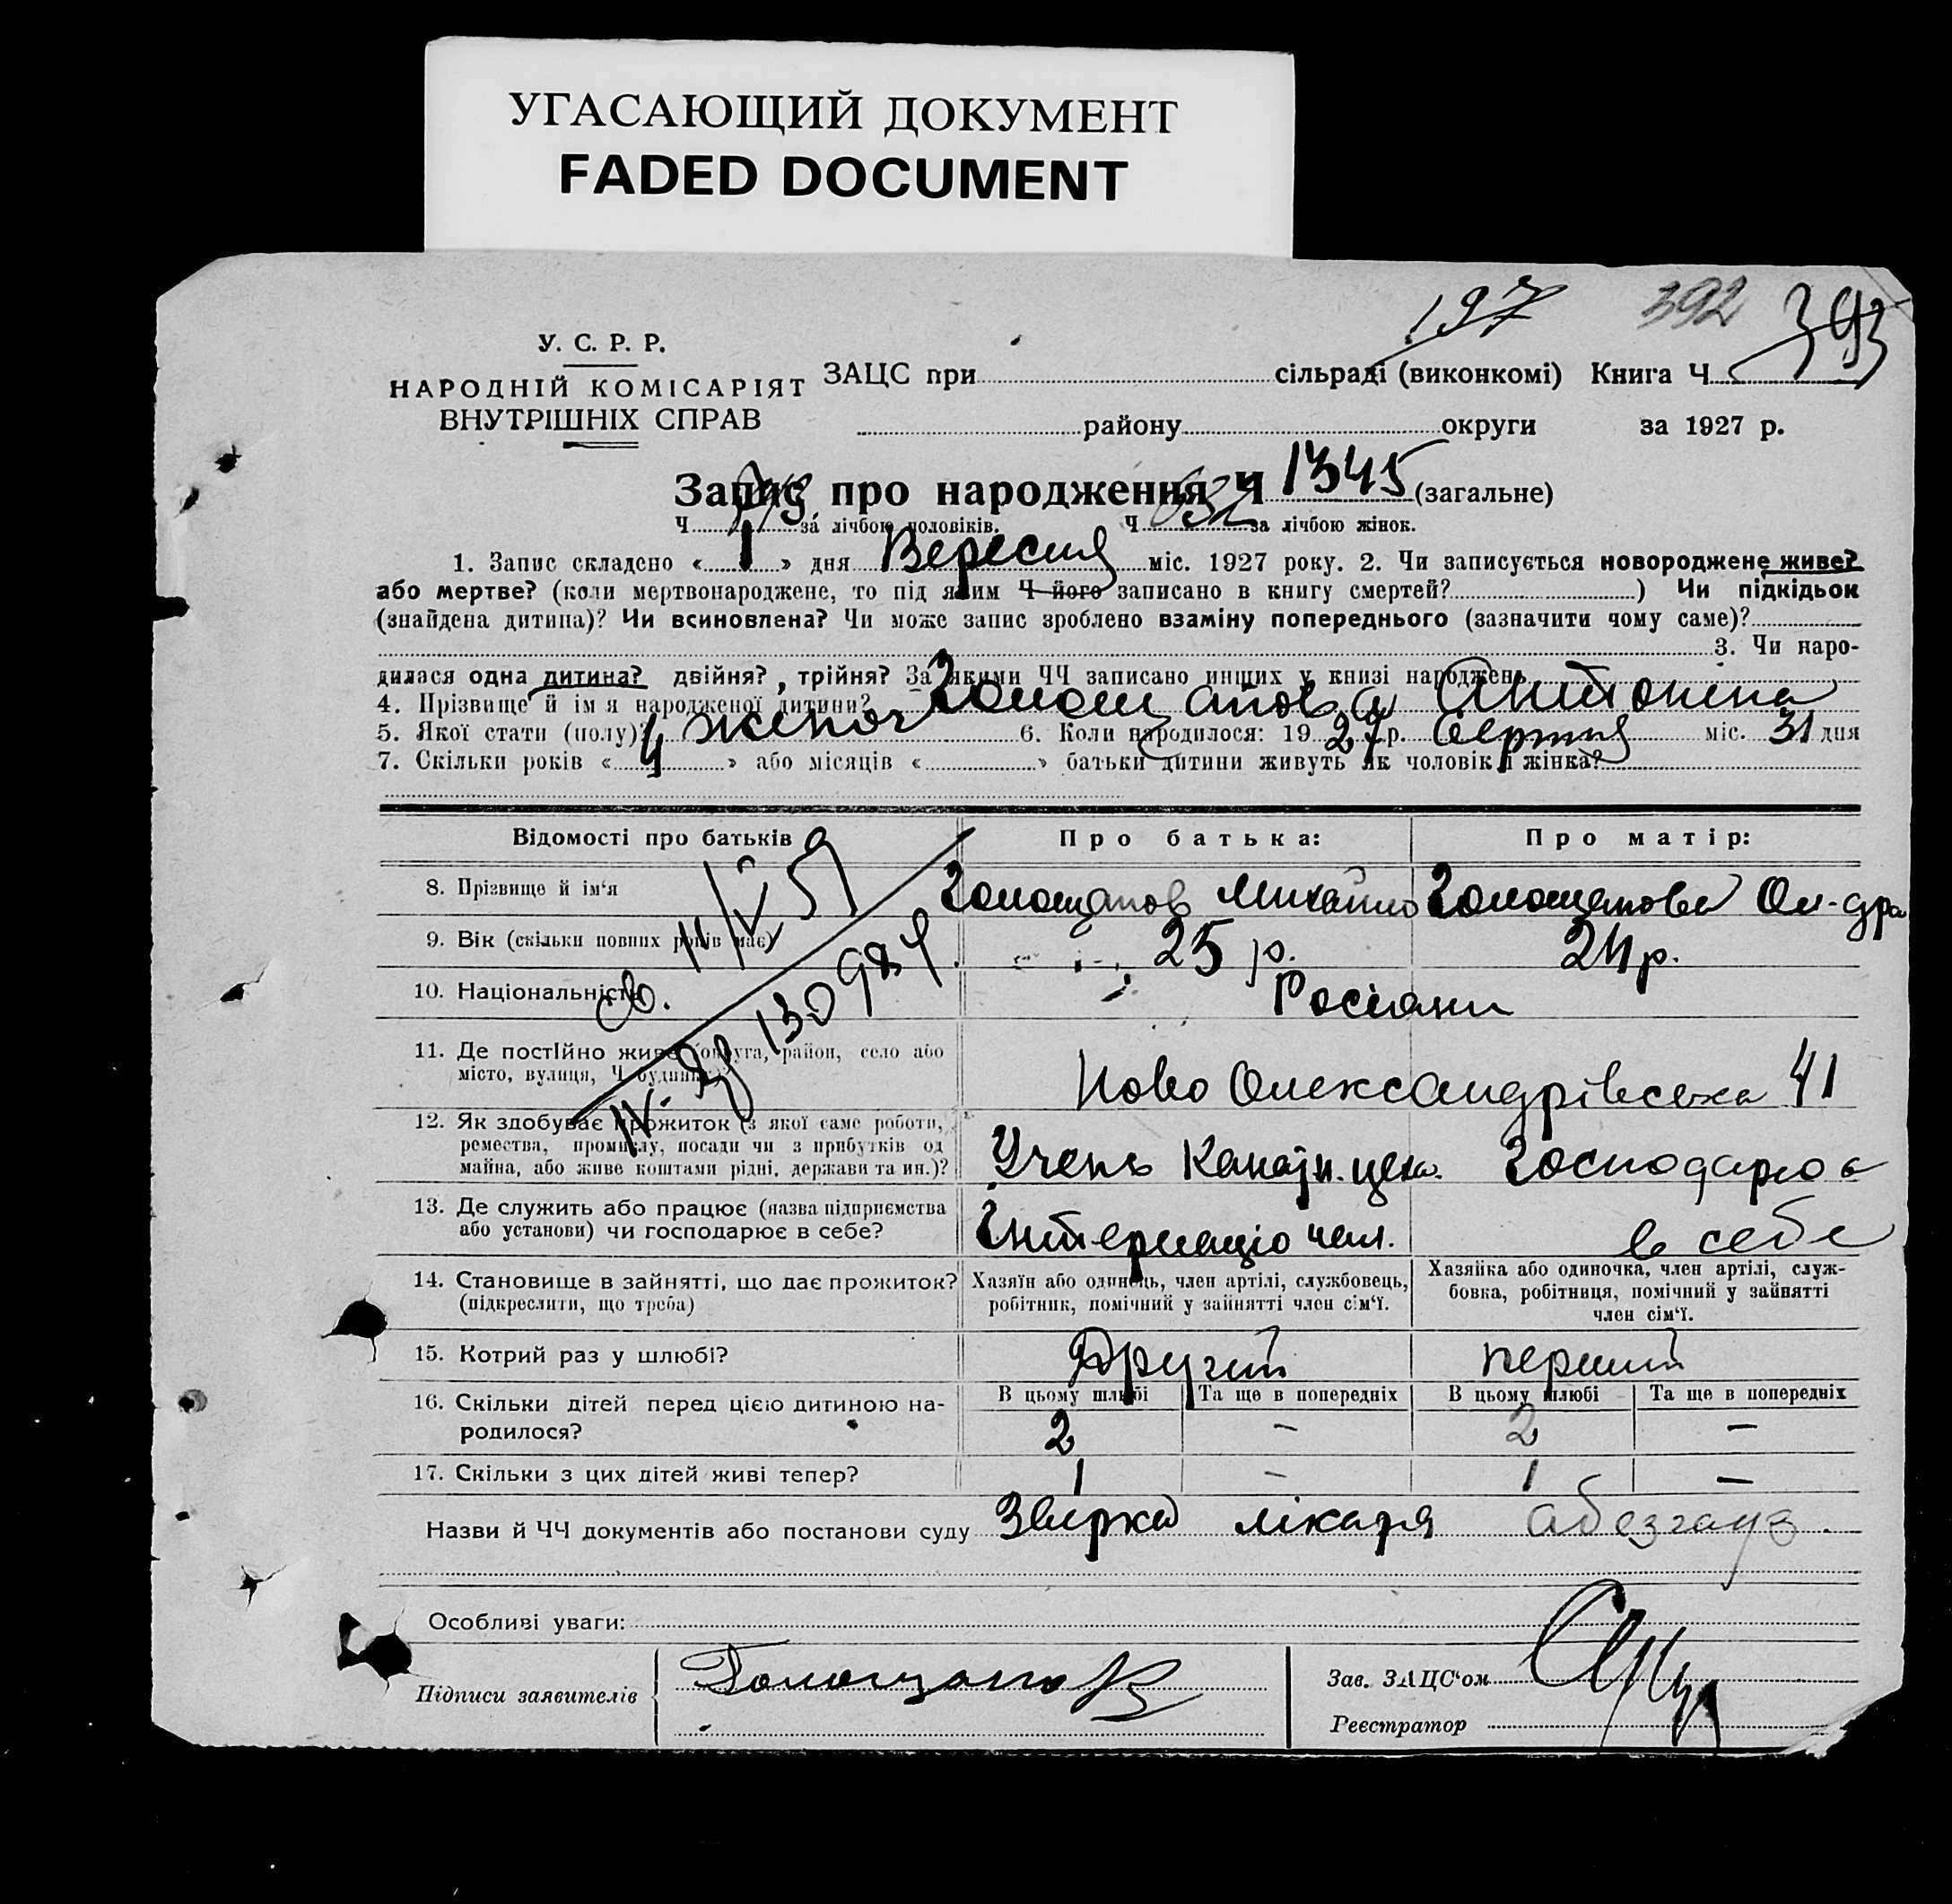 УГАСАЮЩИЙ ДОКУМЕНТ
FADED DOCUMENT
197 392 393
У. С. Р. Р.
НАРОДНІЙ КОМІСАРІЯТ
ВНУТРІШНІХ СПРАВ
ЗАЦС при сільраді (виконкомі) Книга Ч
району округи за 1927 р.
Запис про народження Ч 1345 (загальне)
Ч за лічбою чоловіків. Ч 632 за лічбою жінок.
1. Запис складено « 1 » дня Вересня міс. 1927 року. 2. Чи записується новороджене живе?
або мертве? (коли мертвонароджене, то під яким Ч його записано в книгу смертей? ) Чи підкідьок
(знайдена дитина)? Чи всиновлена? Чи може запис зроблено взаміну попереднього (зазначити чому саме)?
3. Чи наро-
дилася одна дитина? двійня?, трійня? За якими ЧЧ записано инших у книзі народжень
4. Прізвище й ім'я народженої дитини? Голощапова Антонина
5. Якої стати (полу)? жіноч 6. Коли народилося: 1927 р. Серпня міс. 31 дня
7. Скільки років « 4 » або місяців « » батьки дитини живуть як чоловік і жінка?
Відомості про батьків Про батька: Про матір:
8. Прізвище й ім'я Голощапов Михайло Голощапова Ол-дра
9. Вік (скільки повних років має) 25 р. 24 р.
10. Національність Росіяни
11. Де постійно живе (округа, район, село або
місто, вулиця, Ч будинку) Ново Олександрівська 41
12. Як здобуває прожиток (з якої саме роботи,
ремества, промислу, посади чи з прибутків од
майна, або живе коштами рідні, держави та ин.)? Учень цеха. Господарює
13. Де служить або працює (назва підприємства
або установи) чи господарює в себе? Інтернаціонал. в себе
14. Становище в зайнятті, що дає прожиток?
(підкреслити, що треба)
Хазяїн або одинець, член артілі, службовець,
робітник, помічний у зайнятті член сім'ї.
Хазяйка або одиночка, член артілі, служ-
бовка, робітниця, помічний у зайнятті
член сім'ї.
15. Котрий раз у шлюбі? Другий перший
В цьому шлюбі Та ще в попередніх В цьому шлюбі Та ще в попередніх
16. Скільки дітей перед цією дитиною на-
родилося? 2 – 2 –
17. Скільки з цих дітей живі тепер? 1 – 1 –
Назви й ЧЧ документів або постанови суду лікаря Абезгауз.
Особливі уваги:
Підписи заявителів Голощапов
Зав. ЗАЦС'ом
Реєстратор